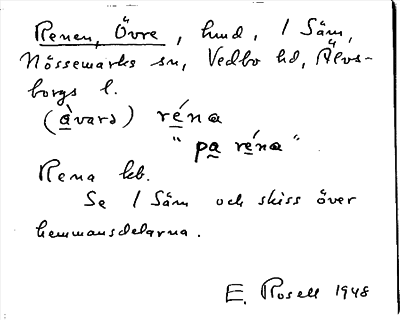 Renen, Övre, hmd, 1 Säm,
Nössemarks sn, Vedbo hd, Älvs-
borgs l.
(àvard) réna
" pa réna "
Rena kb.
Se 1 Säm och skiss över
hemmansdelarna.
E. Rosell 1948